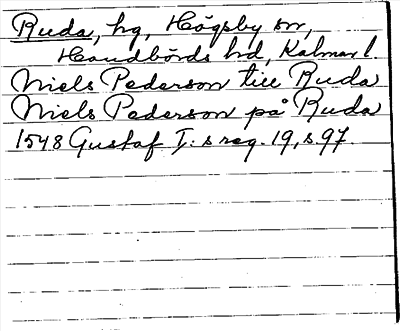 Ruda, hg, Högsby sn,
Handbörds hd, Kalmar l.
Niels Pederson till Ruda
Niels Pederson på Ruda
1548 Gustaf I:s reg. 19, s. 97.